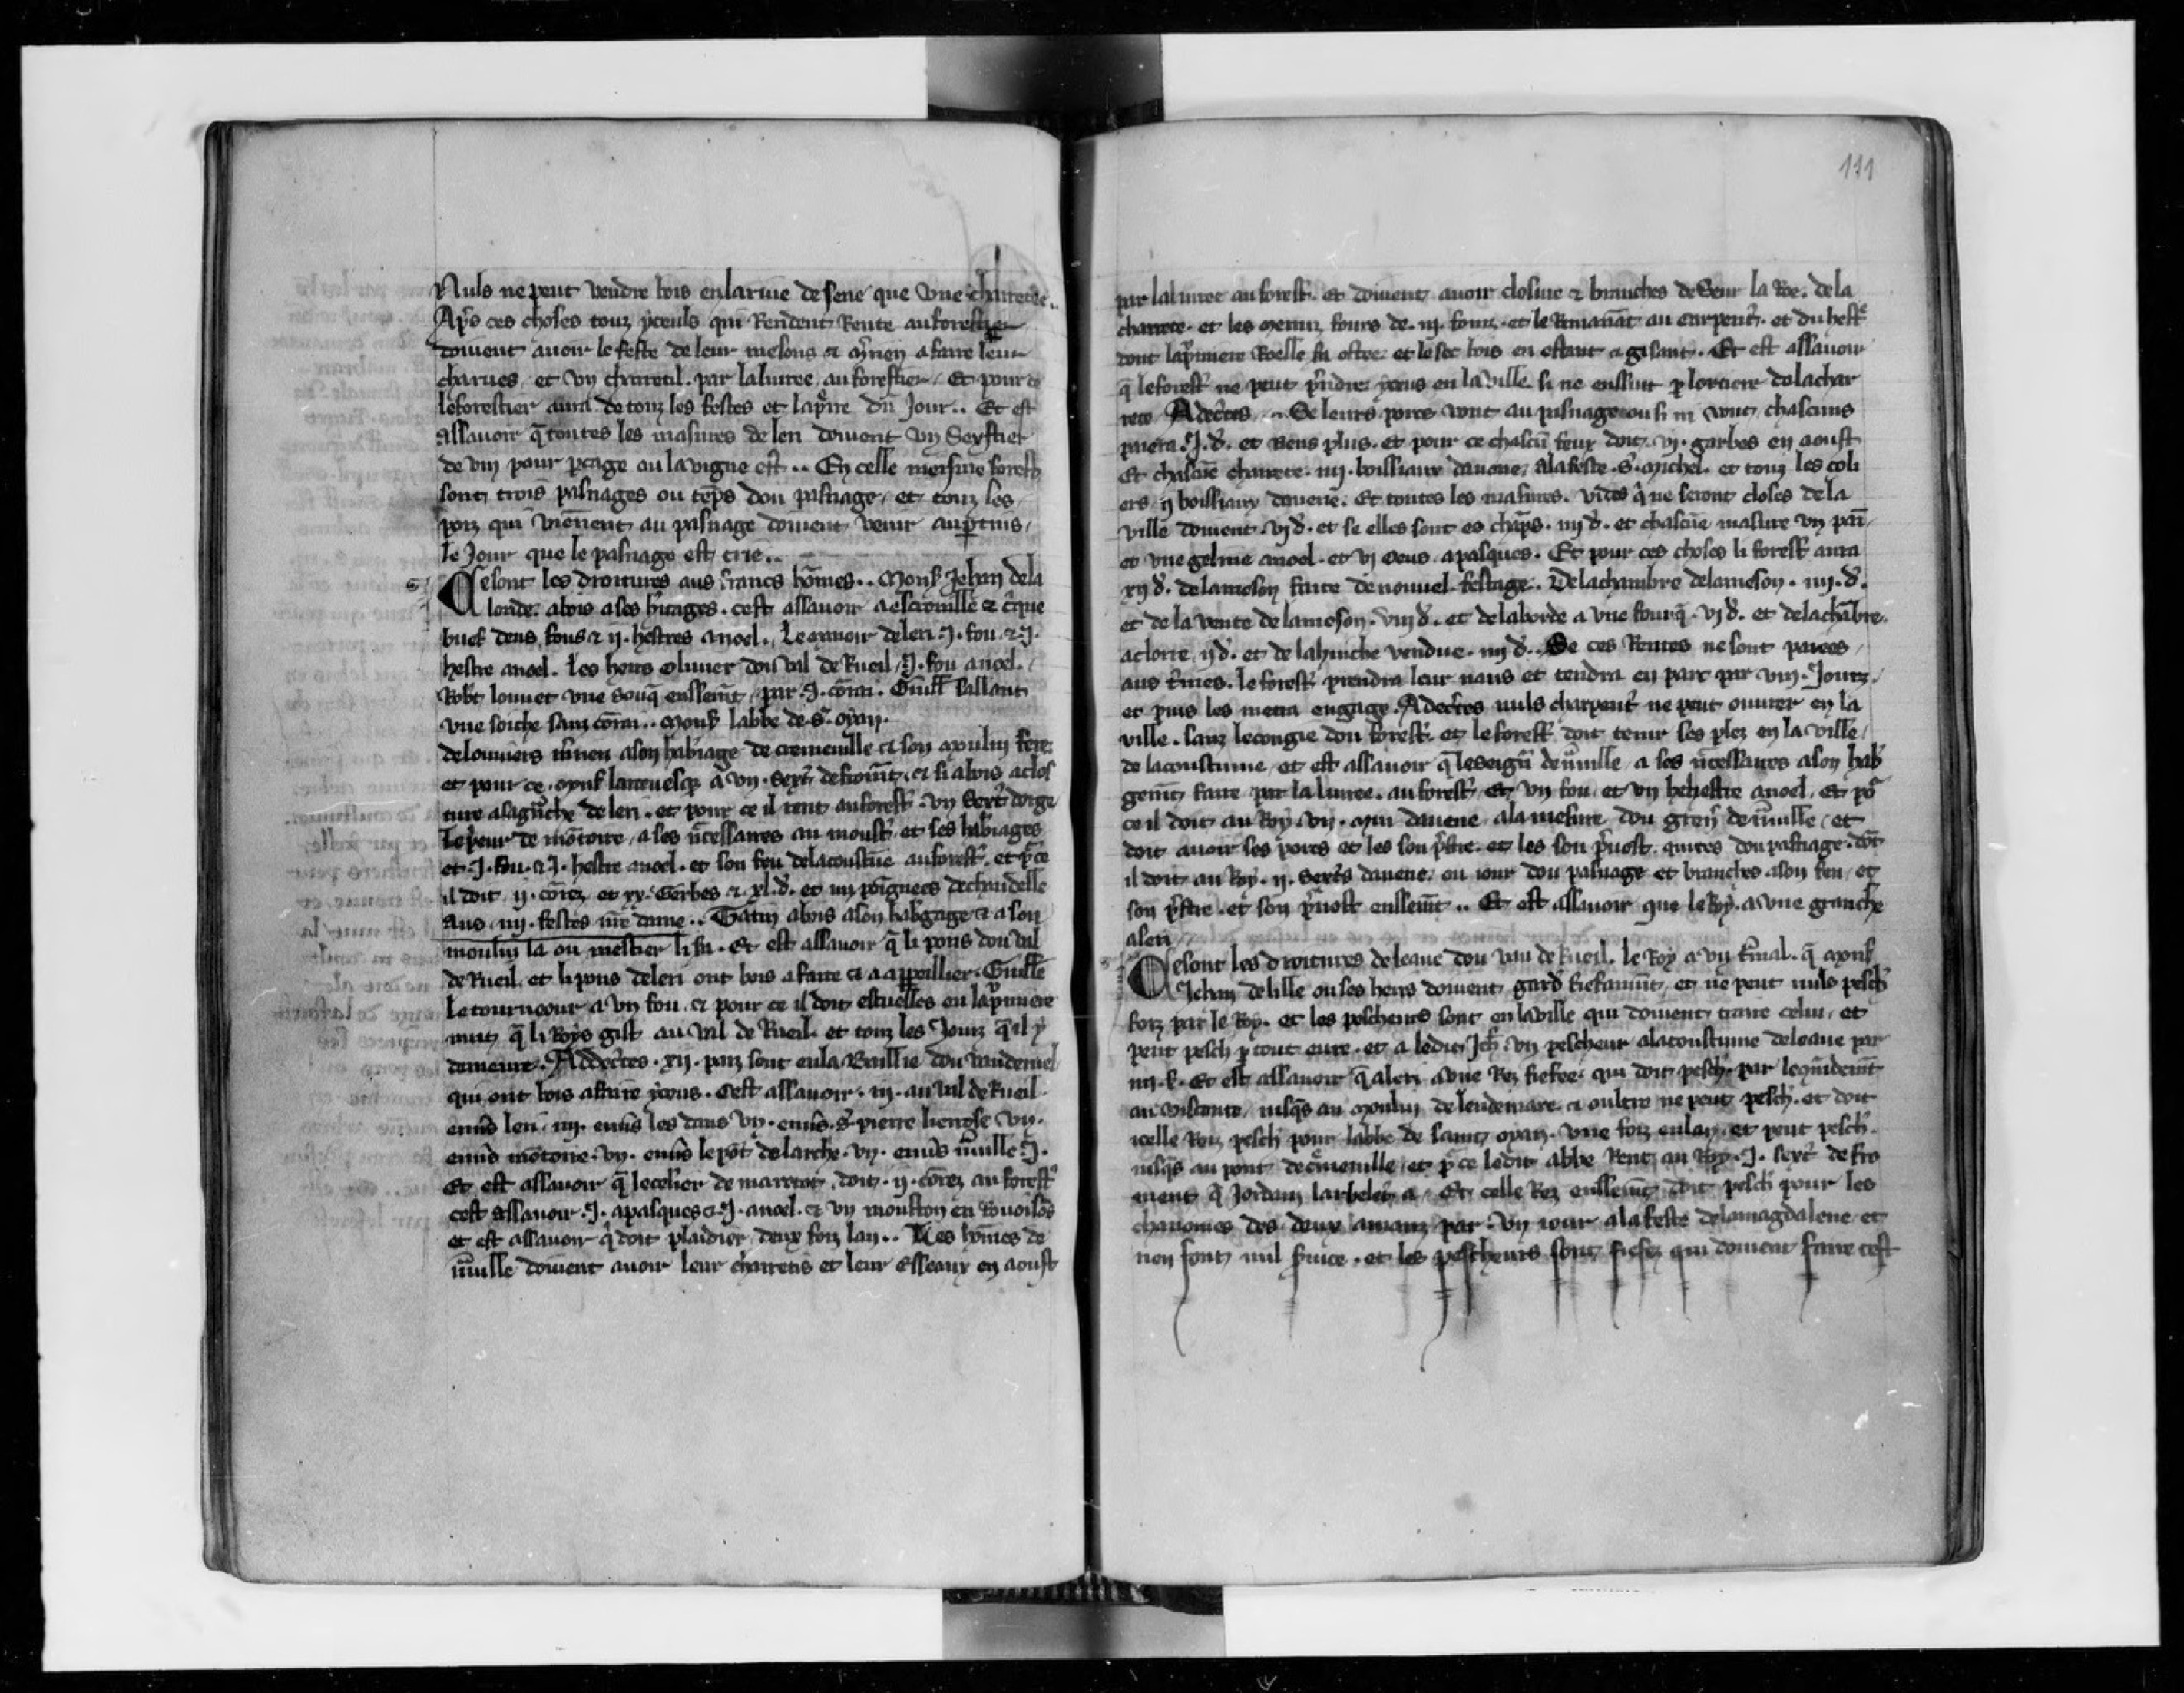 Nuls ne peut vendre bois en larriue de sene que vne charretee..
Apˢ ces choses touz yceuls qui Rendent Rente au forestier
doiuent auoir le feste de leur mesons et mˢrien a faire leur
charues, et vn charretil. par la liuree au forestier. Et pour ce
le forestier aura de touz les festes et lapͥre dũ Jour.. Et est
assauoir q̄ toutes les masures de leri doiuent vn Sexstier
de vin pour pcage ou la vigne est.. En celle meisme forest
sont trois pasnages ou tēps dou pasnage, et touz les
porz qui viēnent au pasnage doiuent venir au ptuis,
le Jour que le pasnage est crie..
Ce sont les droitures aus francs hōmes.. Mons Jehan de la
londe. a bois a ses hˢitages. cest assauoir a escrouille et cͥque
buef deus fous et ii. hestres a noel. Le manoir de leri .J. fou. et .J.
hestre a noel. Les heirs oliuier dou val de Rueil .J. fou a noel.
Robˢt louuet vne souq̄ enssem̄t par .J. cōrai. Guill̄ vallant
vne soiche sanz cōrai.. Mons labbe de .Sͭ. oyan.
de louuiers mˢrien a son habˢiage de cremeuille et a son moulin fere.
et pour ce. mons larceuesq̄ a vn. sextˢ de from̄t. et si a bois a clos
ture a la gͣnche de leri. et pour ce il rent au forestˢ. vn Sextˢ dorge
Le prieur de mōtoire, a ses nˢcessaires au moustˢ. et ses habˢiages
et .J. fou. et .J. hestre a noel. et son feu de la coustūe au forestˢ. et pͬ ce
il doit. ii. cōrez, et xx. Gerbes et xl. d. et iiii poignees de chandelle
aus. iiii. festes nr̄e dame.. Gatin a bois a son habˢgage et a son
moulin la ou mestier li fu. Et est assauoir q̄ li pons dou val
de Rueil. et li pons de leri ont bois a faire et a appeillier. Guill̄e
le tourneour a vn fou. et pour ce il doit escuelles en lapͥmiere
nuit, q̄ li Roys gist au val de Rueil. et touz les Jourz q̄ il y
demeure. Adcˢtes. xii. parz sont en la Baillie dou vaudemel
qui ont bois a faire yceus. Cest assauoir. iii. au val de Rueil.
enuˢs leri. iiii. enuˢs les dans vn. enuˢs. Sͭ pierre lierose vn.
enuˢs mōtoire. vn. enuˢs le pōt de larche. vn. enuˢs iͥuille .J.
Et est assauoir q̄ le celˢier de maretot. doit. ii. cōrez au forestˢ
cest assauoir .J. a pasques et .J. a noel. et vn mouston en Rouoisōs
et est assauoir q̄ doit plaidier deux foiz lan.. Les hōmes de
iͥuille doiuent auoir leur charretis et leur Esseaux en aoust
111
par la liuree au forestˢ. et doiuent auoir closure et branches de Seur la Roe. de la
charrete. et les menuz fours de. iii. fourz. et le Remanāt au carpentˢ. et du hestˢ
dont lapͥmiere Roelle fu ostee. et le sec bois en estant et gisant. Et est assauoir
q̄ le forestˢ ne peut pͥndre yceus en la ville. si ne enssuit p lortiere de la char
rete. Adcˢtes.. Se leurs porcs vont au pasnage ou si ni vont, chascuns
paiera .J. d. et Riens plus. et pour ce chascū feux doit. vi. garbes en aoust
Et chascūe charrete. iiii. boissiaux dauene. a la feste. Sͭ. michel. et touz les coli
ers. ii boissiaux dauene. Et toutes les masures. vides q̄ ne seront closes de la
ville doiuent. vi d. et se elles sont es chāps. iiii d. et chascūe masure vn pai̅
et vne geline a noel. et vi oeus. a pasques. Et pour ces choses li forestˢ aura
xii d. de la meson faite de nouuel. festage. De la chambre de la meson. iiii. d.
et de la vente de la meson. viii d. et de la borde a vne fourq̄. vi d. et de la chābre.
a clorre ii d. et de la huiche vendue. iiii d. Se ces Rentes ne sont paiees,
aus tˢmes. le forestˢ prendra leur nans et tendra en parc par viii. Jourz.
et puis les metra en gage. Adcˢtes nuls charpentˢ ne peut ouurer en la
ville. sanz le congie dou forestˢ. et le forestˢ doit tenir ses plez en la ville,
de la coustume, et est assauoir q̄ le seignˢ de iͥuille, a ses nˢcessaires a son habˢ
gem̄t, faire par la liuree. au forestˢ. Et vn fou, et vn hehestre a noel. Et poͬ
ce il doit au Roy. vn. mui dauene a la mesure dou grenˢ de iͥuille, et
doit auoir ses porcs et les son pˢstre. et les son pͥuost. quites dou pasnage. dōt
il doit au Roy. ii. sextˢs dauene. ou iour dou pasnage et branches a son feu, et
son pˢstre. et son pͥuost enssem̄t.. Et est assauoir que le Roy. a vne granche
a leri
Ce sont les droitures de leaue dou vau de Rueil. Le Roy a vn kinal. q̄ mons
Jehan de lille ou ses heirs doiuent gardˢ fiefaum̄t, et ne peut nuls peschˢ
forz par le Roy. et les pescheurs sont en la ville qui doiuent traire celui, et
peut peschˢ p tout eure. et a ledit Jehˢ. vn pescheur a la coustume de leaue par
iiii. s. Et est assauoir q̄ a leri a vne Rez fiefee. qui doit peschˢ. par
au viscomte, iusq̄s au moulin de lendemare. et oultre ne peut peschˢ. et doit
icelle Roiz peschˢ pour labbe de saint oyan. vne foiz en lan. et peut peschˢ.
iusq̄s au pont de cͬmeuille. et pͬ ce ledit abbe Rent au Roy. J. sextˢ de fro
ment q̄ Jordain larbelestˢ a. Et celle Rez enssem̄t doit peschˢ pour les
chanoines des deux amanz par. vn iour a la feste de la magdalene et
nen font nul sˢuice. et les pescheurs sont fiefez qui doiuent faire cest